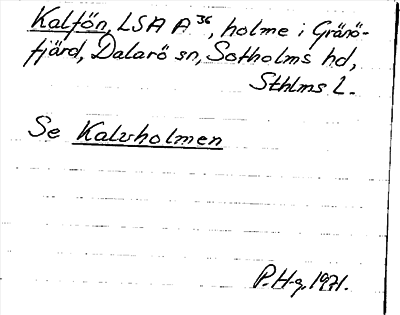 Kalfön, LSA A 36, holme i Gränö-
fjärd, Dalarö sn, Sotholms hd,
Sthlms l.
Se Kalvholmen
P.H-g. 1971.